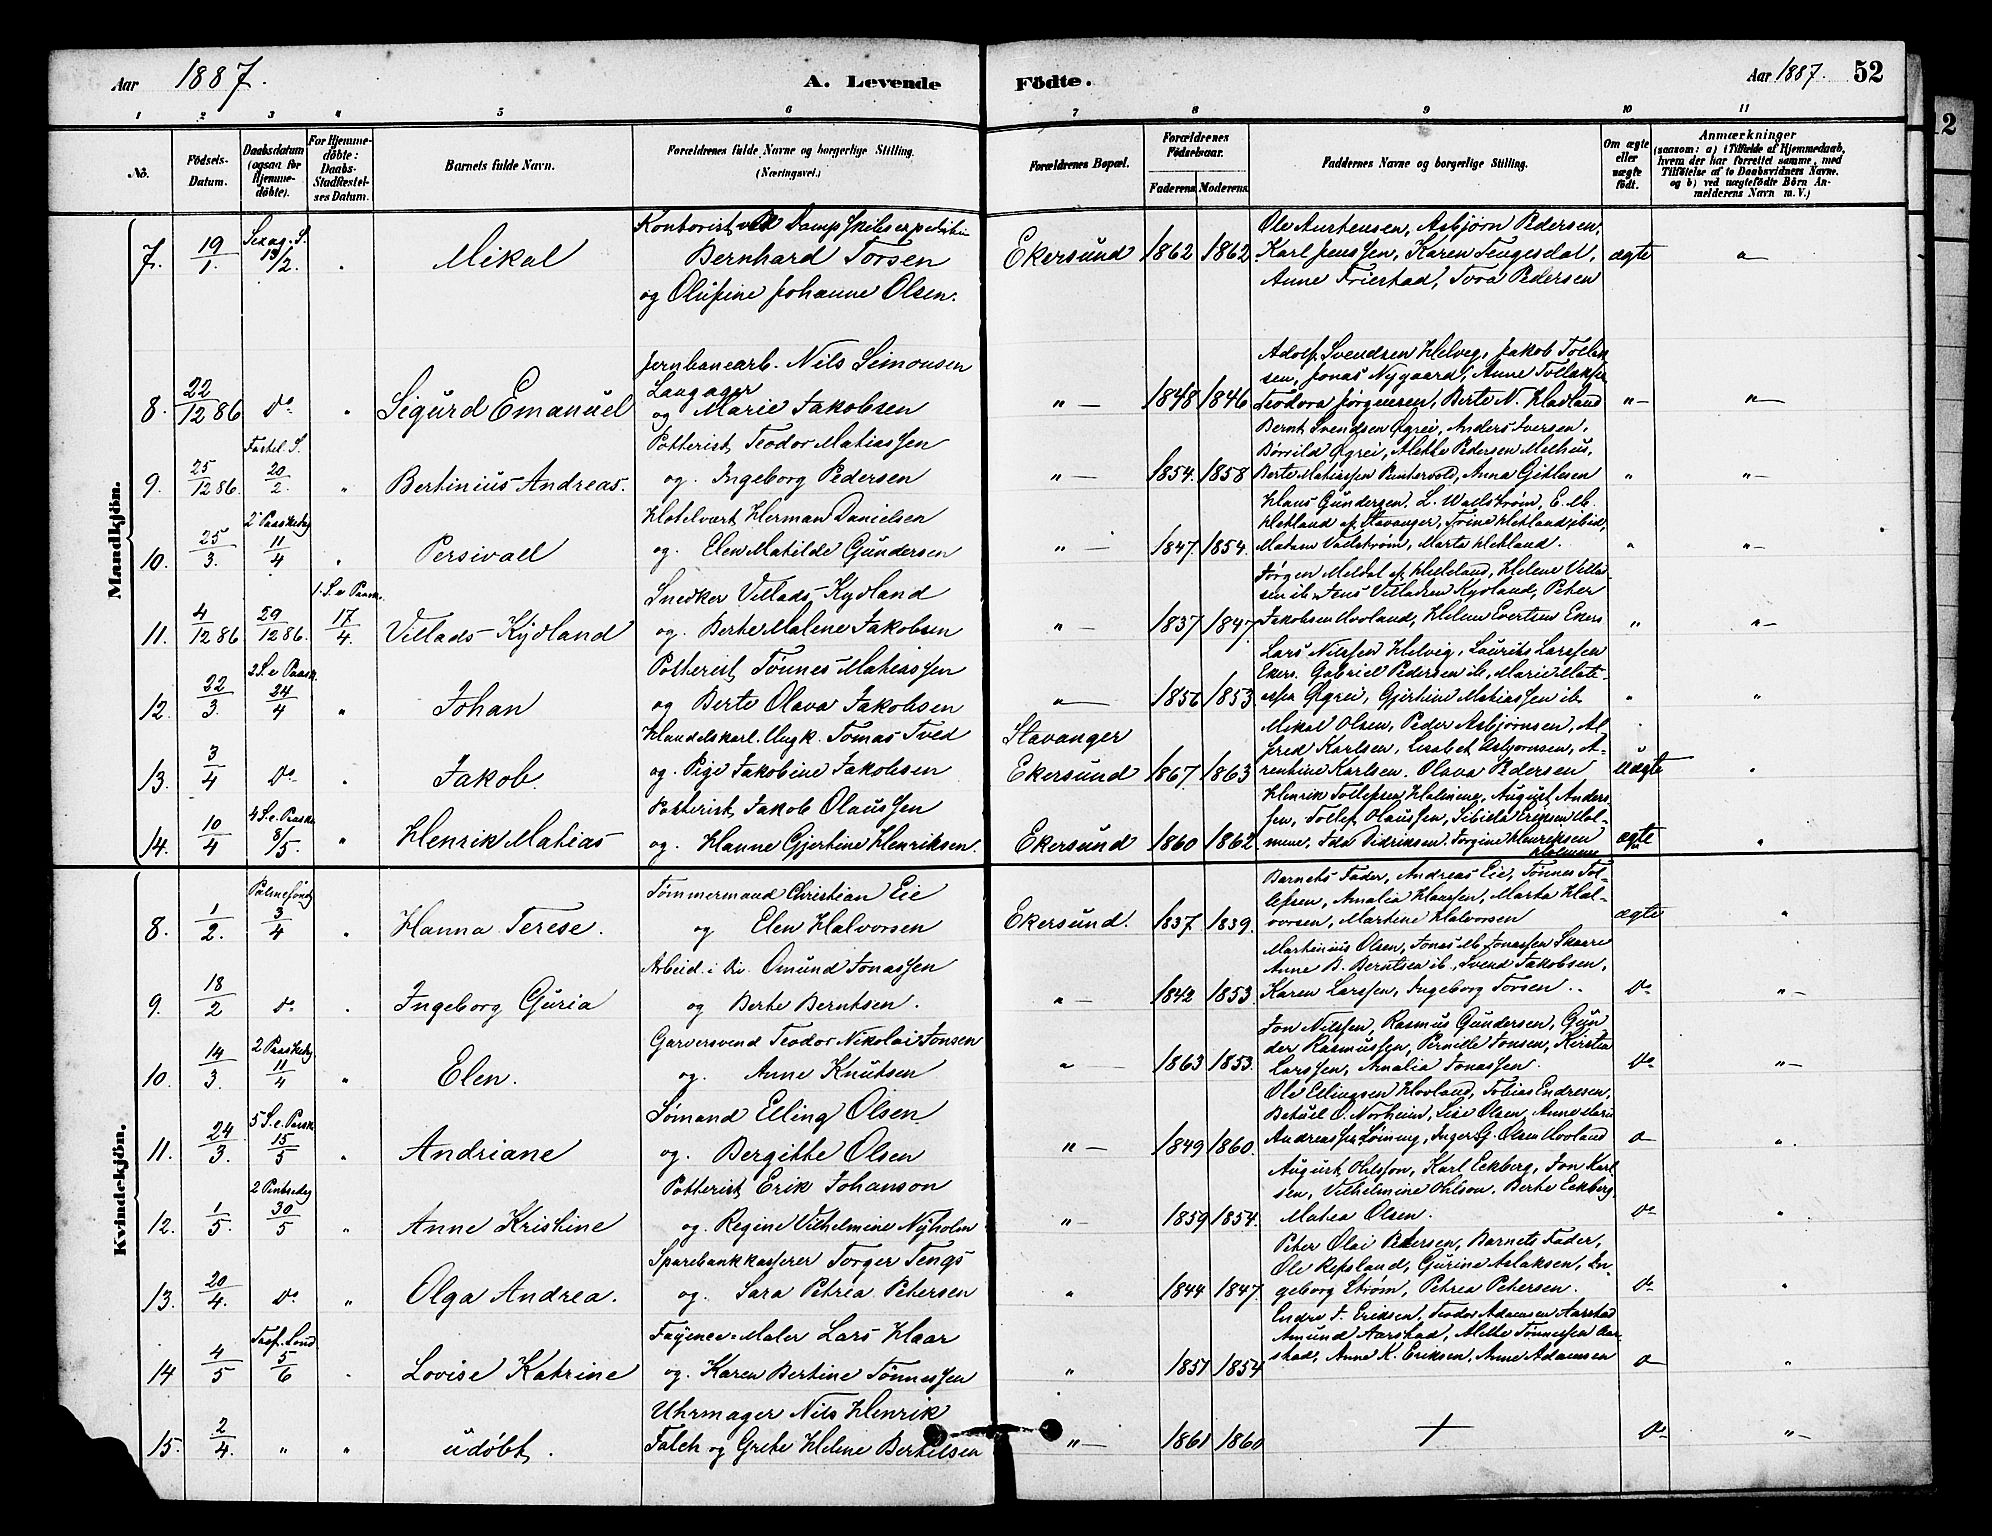 Aar 1887. A. Levende Födte. Aar 1887. 52
1 2 3 4 5 6 7 8 9 10 11
No. Födsels-Datum. Daabsdatum (ogsaa for Hjemme-döbte). For Hjemme-döbte: Daabs-Stadfæstelses Datum. Barnets fulde Navn. Forældrenes fulde Navne og borgerlige Stilling. (Næringsvei.) Forældrenes Bopæl. Forældrenes Födselsaar. Faderens. Moderens. Faddernes Navne og borgerlige Stilling. Om ægte eller uægte födt. Anmærkninger (saasom: a) i Tilfælde af Hjemmedaab, hvem der har forrettet samme, med Tilföielse af to Daabsvidners Navne, og b) ved uægtefödte Börn Anmelderens Navn m. V.)
Mandkjön.
7. 19/1. Sexag. S. 13/2. " Mikal
Kontorist ved Dampskibsexpedition
Bernhard Torsen
og Olufine Johanne Olsen.
Ekersund 1862 1862
Ole Aurtensen, Asbjørn Pedersen,
Karl Jenssen, Karen Tengesdal,
Anne Friestad, Tora Pedersen
ægte "
8. 22/12 86 Do " Sigurd Emanuel
Jernbanearb. Nils Simonsen
Langager
og Marie Jakobsen
" 1848 1846
Adolf Svendsen Helvig, Jakob Tollak
sen, Jonas Nygaard, Anne Tollaksen
Teodora Jørgensen, Berte N. Havland
" "
9. 25/12 86. Fastel. S. 20/2. " Bertinius Andreas.
Potterist Teodor Matiassen
og Ingeborg Pedersen
" 1854. 1858
Bernt Svendsen Øgrei, Anders Iversen,
Børvild Øgrei, Alette Pedersen Melhus,
Berte Matiassen, Anna Gitlesen
" "
10. 25/3. 2 Paaskedag 11/4 " Persivall
Hotelvært Herman Danielsen
og. Elen Matilde Gundersen
" 1847. 1854.
Hans Gundersen. L. Wallstrøm, E. M.
Hetland af Stavanger, Trine Hetland ibid,
Madam Vallstrøm, Marta Hetland.
" "
11. 4/12 86 29/12 86. 1. S. e Paaske. 17/4. Villads Kydland
Snedker Villads Kydland
og. Berte Malene Jakobsen
" 1837 1847.
Jørgen Meldal af Helleland, Helene Villa
sen ib. Jens Villadsen Kydland, Peter
Jakobsen Hovland, Helene Evertsen Ekers
" "
12. 22/3. 2 S. e Paask. 24/4 " Johan
Potterist Tønnes Matiassen
og Berte Olava Jakobsen
" 1856 1853
Lars Nilssen Helvig, Laurits Larssen
Ekers. Gabriel Pedersen ib, Marie Mati-
assen Øgrei, Gjertine Matiassen ib
" "
13. 3/4 Do " Jakob.
Handelskarl. Ungk. Tomas Tved
og. Pige Jakobine Jakobsen
Stavanger
Ekersund 1867. 1863
Mikal Olsen, Peder Asbjørnsen, Al-
fred Karlsen, Lisabet Asbjørnsen, A-
rentine Karlsen. Olava Pedersen
uægte "
14. 10/4 4 S. e. Paaske 8/5. " Henrik Matias
Potterist Jakob Olaussen
og. Hanne Gjertine Henriksen.
Ekersund 1860 1862
Henrik Tollefsen Holmene, August Anders
sen, Tollef Olaussen, Sibille Eriksen Hol-
mene, Ida Didriksen. Jørgine Henriksen
Holmene
ægte "
Kvindekjön.
8. 1/2. Palmesøndag 3/4 " Hanna Terese.
Tømmermand Christian Eie
og Elen Halvorsen
Ekersund. 1837 1839.
Barnets Fader, Andreas Eie, Tønnes Tol-
lefsen, Amalia Hanssen, Marta Hal-
vorsen, Martine Halvorsen
ægte "
9. 18/2 Do . Ingeborg Guria
Arbeid. i Do. Omund Jonassen
og Berte Berntsen.
" 1842 1853.
Martinius Olsen, Jonas M. Jonassen Skaare
Anne B. Berntsen ib, Svend Jakobsen,
Karen Larssen, Ingeborg Torsen..
Do "
10. 14/3. 2 Paaskedag 11/4 " Elen.
Garversvend Teodor Nikolai Jonsen
og. Anne Knutsen
" 1863 1853.
Jon Nilssen, Rasmus Gundersen, Gun
der Rasmussen, Pernille Jonsen, Kirsten
Larssen, Amalia Jonassen.
Do "
11. 24/3. 5 S. e. Paaske 15/5 " Andriane
Sømand Elling Olsen
og. Bergitte Olsen
" 1849 1860.
Ole Ellingsen Hovland, Tobias Endresen,
Betuel O. Norheim, Lise Olsen, Anne Marie
Andreassen, Inger G. Olsen Hovland
Do "
12. 1/5. 2 Pintsedag 30/5 " Anne Kristine
Potterist Erik Johanson
og. Regine Vilhelmine Nyholm
" 1859 1854.
August Ohlsson, Karl Eckberg, Jon Karl
sen, Vilhelmine Ohlson. Berte Eckberg
Matea Olsen.
Do "
13. 20/4. Do " Olga Andrea.
Sparebankkasserer Torger Tengs
og. Sara Petrea Petersen
" 1844 1847.
Peter Olai Petersen, Barnets Fader,
Ole Refsland, Gurine Aslaksen, In-
geborg Strøm, Petrea Petersen.
Do "
14 4/5 Tref. Sond 5/6 " Lovise Katrine
Fayence-Maler Lars Haar
og. Karen Bertine Tønnessen
" 1851 1854
Endre T. Eriksen, Teodor Adamsen Aarstad
Amund Aarstad, Alette Tønnessen Aar-
stad, Anne K. Eriksen, Anne Adamsen
Do "
15. 2/4. " " udøbt.
Uhrmager Nils Henrik
Falch og Grete Helene Bertelsen
" 1861 1860
+
Do "